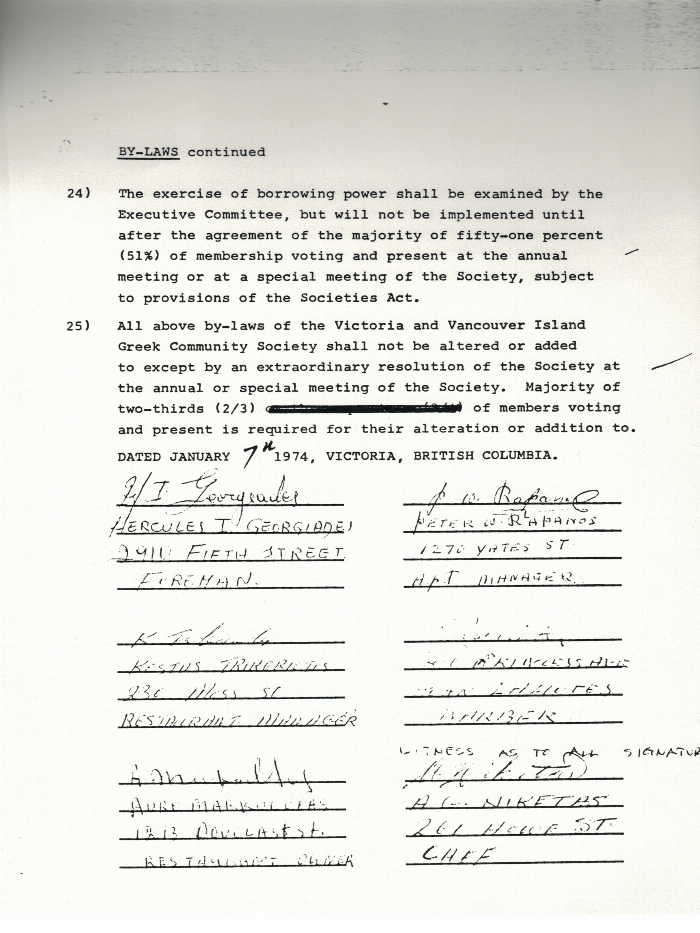 BY-LAWS continued
24) The exercise of borrowing power shall be examined by the
Executive Committee, but will not be implemented until
after the agreement of the majority of fifty-one percent
(51%) of membership voting and present at the annual
meeting or at a special meeting of the Society, subject
to provisions of the Societies Act.
25) All above by-laws of the Victoria and Vancouver Island
Greek Community Society shall not be altered or added
to except by an extraordinary resolution of the Society at
the annual or special meeting of the Society. Majority of
two-thirds (2/3) of members voting
and present is required for their alteration or addition to.
DATED JANUARY 7th 1974, VICTORIA, BRITISH COLUMBIA.
H I Georgiades
HERCULES I GEORGIADES
2910 FIFTH STREET
FOREMAN.
P W. Rapanos
PETER W. RAPANOS
1270 YATES ST
APT MANAGER
K
KOSTAS
230 MOSS ST
RESTAURANT MANAGER
PRINCESS AVE
BARBER
DOUGLAS St.
RESTAURANT OWNER
WITNESS AS TO ALL SIGNATUR
A G. Niketas
A G. NIKETAS
261 HOWE ST.
CHEF